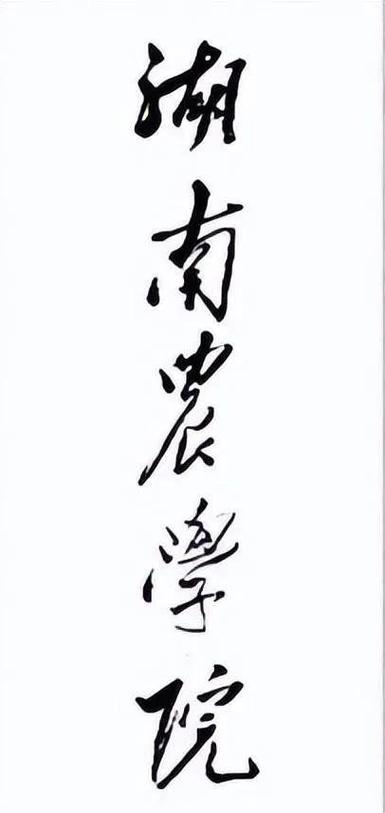 湖南農學院